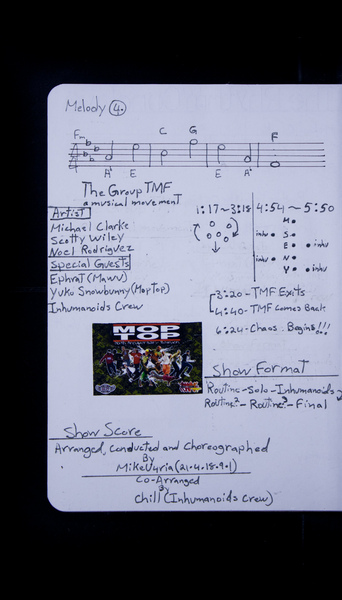 Melody 4.
Fm C G F
A E E A
The Group TMF
a musical movement
Artist
Michael Clarke
Scotty Wiley
Noel Rodriguez
Special Guests
Ephrat (Mawu)
Yuko Snowbunny (Mop Top)
Inhumanoids Crew
1:17~3:18
4:54~5:50
M
inhu S
E inhu
inhu N
Y inhu
3:20-TMF Exits
4:40-TMF comes Back
6:24-Chaos Begins!!!
MOP
TOP
Show Format
Routine-Solo-Inhumanoids
Routine2-Routine3-Final
Show Score
Arranged, Conducted and Choreographed
By
(21.4.18.9.1)
Co-Arranged
By
Chill (Inhumanoids Crew)